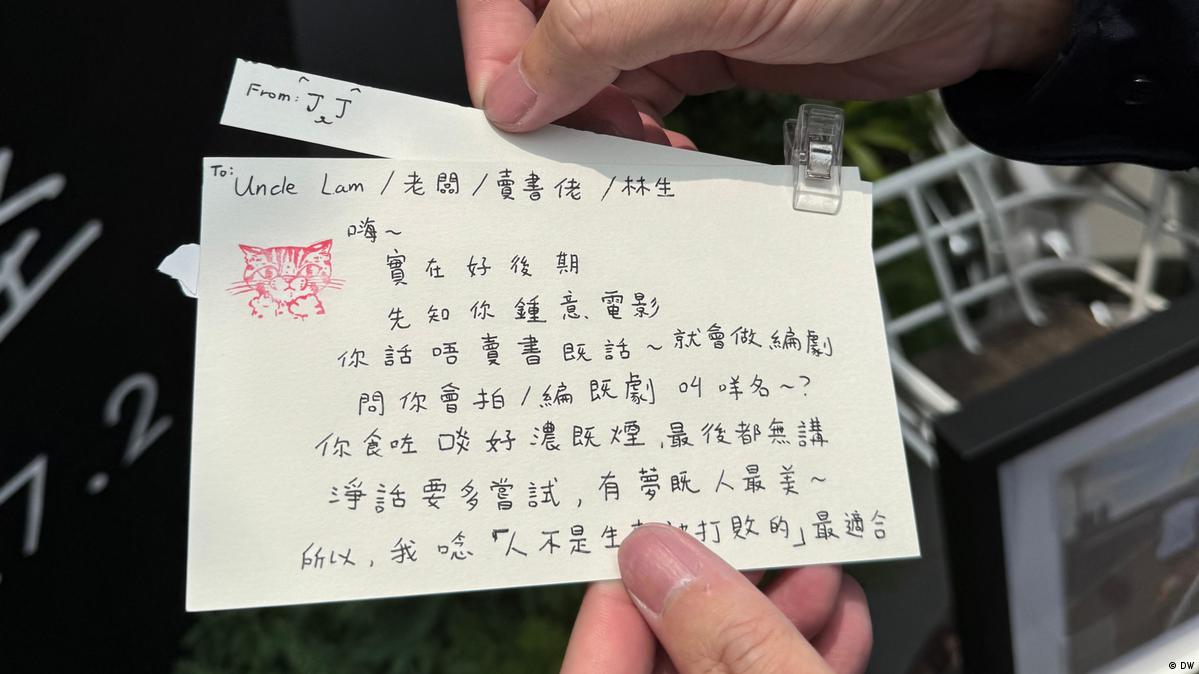 From: JJ
To: Uncle Lam / 老闆 / 賣書佬 / 林生
嗨~
實在好後期
先知你鍾意電影
你話唔賣書既話~就會做編劇
問你會拍/編既劇 叫咩名~?
你食咗 啖好濃既煙,最後都無講
淨話要多嘗試,有夢既人最美~
所以,我唸「人不是生 被打敗的」最適合
7.2
© DW